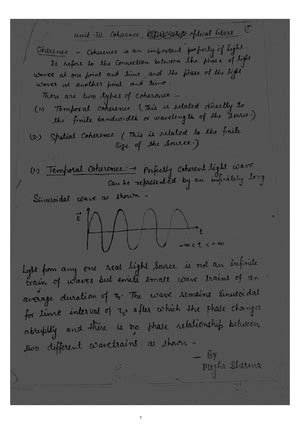 unit-III Coherence, of optical fibers
Coherence - Coherence is an important property of light.
It refers to the connection between the phase of light
waves at one point and time, and the phase of the light
waves at another point and time.
There are two types of coherence -
(1) Temporal Coherence (This is related directly to
the finite bandwidth or wavelength of the source.)
(2) Spatial Coherence (This is related to the finite
size of the source.)
(1) Temporal Coherence :→ Perfectly Coherent light wave
can be represented by an infinitely long
Sinusoidal wave as shown -
E
t
Light from any one real light source is not an infinite
train of waves but emits small wave trains of an
average duration of τ. The wave remains sinusoidal
for time interval of τ, after which the phase changes
abruptly and there is no phase relationship between
two different wavetrains as shown -
— By
Megha Sharma